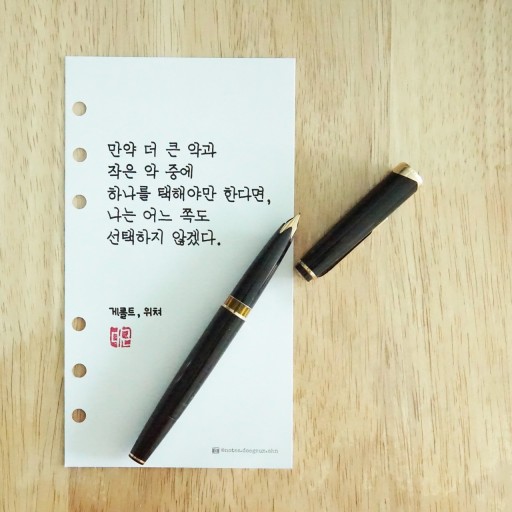 만약 더 큰 악과
작은 악 중에
하나를 택해야만 한다면,
나는 어느 쪽도
선택하지 않겠다.
게롤트, 위쳐